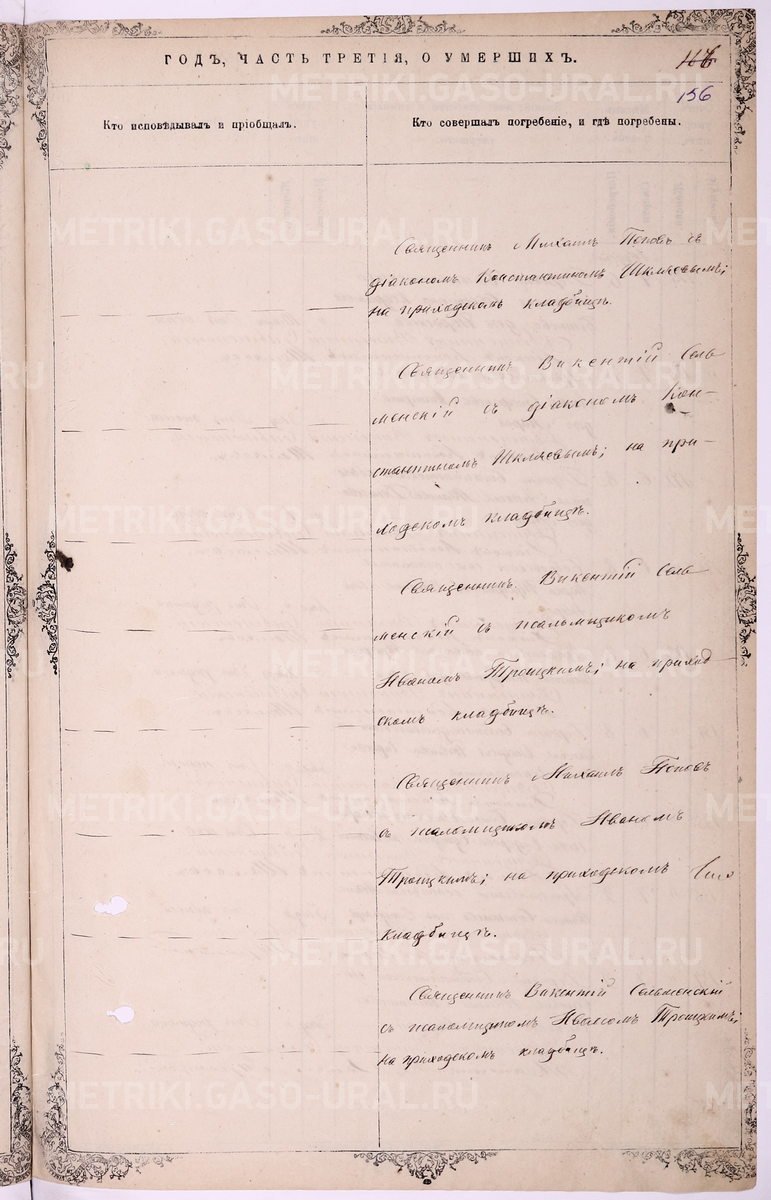 ГОДЪ, ЧАСТЬ ТРЕТІЯ, О УМЕРШИХЪ.
156
Кто исповѣдывалъ и пріобщалъ.
Кто совершалъ погребеніе, и гдѣ погребены.
Священникъ Михаилъ Поповъ съ
діакономъ Константиномъ Шкляевымъ;
на приходскомъ кладбищѣ.
Священникъ Викентій Сель
менскій съ діакономъ Кон-
стантиномъ Шкляевымъ; на при-
ходскомъ кладбищѣ.
Священникъ Викентій Сель
менскій съ псаломщикомъ
Иваномъ Троицкимъ; на приход
скомъ кладбищѣ.
Священникъ Михаилъ Поповъ
съ псаломщикомъ Иваномъ
Троицкимъ; на приходскомъ
кладбищѣ.
Священникъ Викентій Сельменскій
съ псаломщикомъ Иваномъ Троицкимъ;
на приходскомъ кладбищѣ.
METRIKI.GASO-URAL.RU